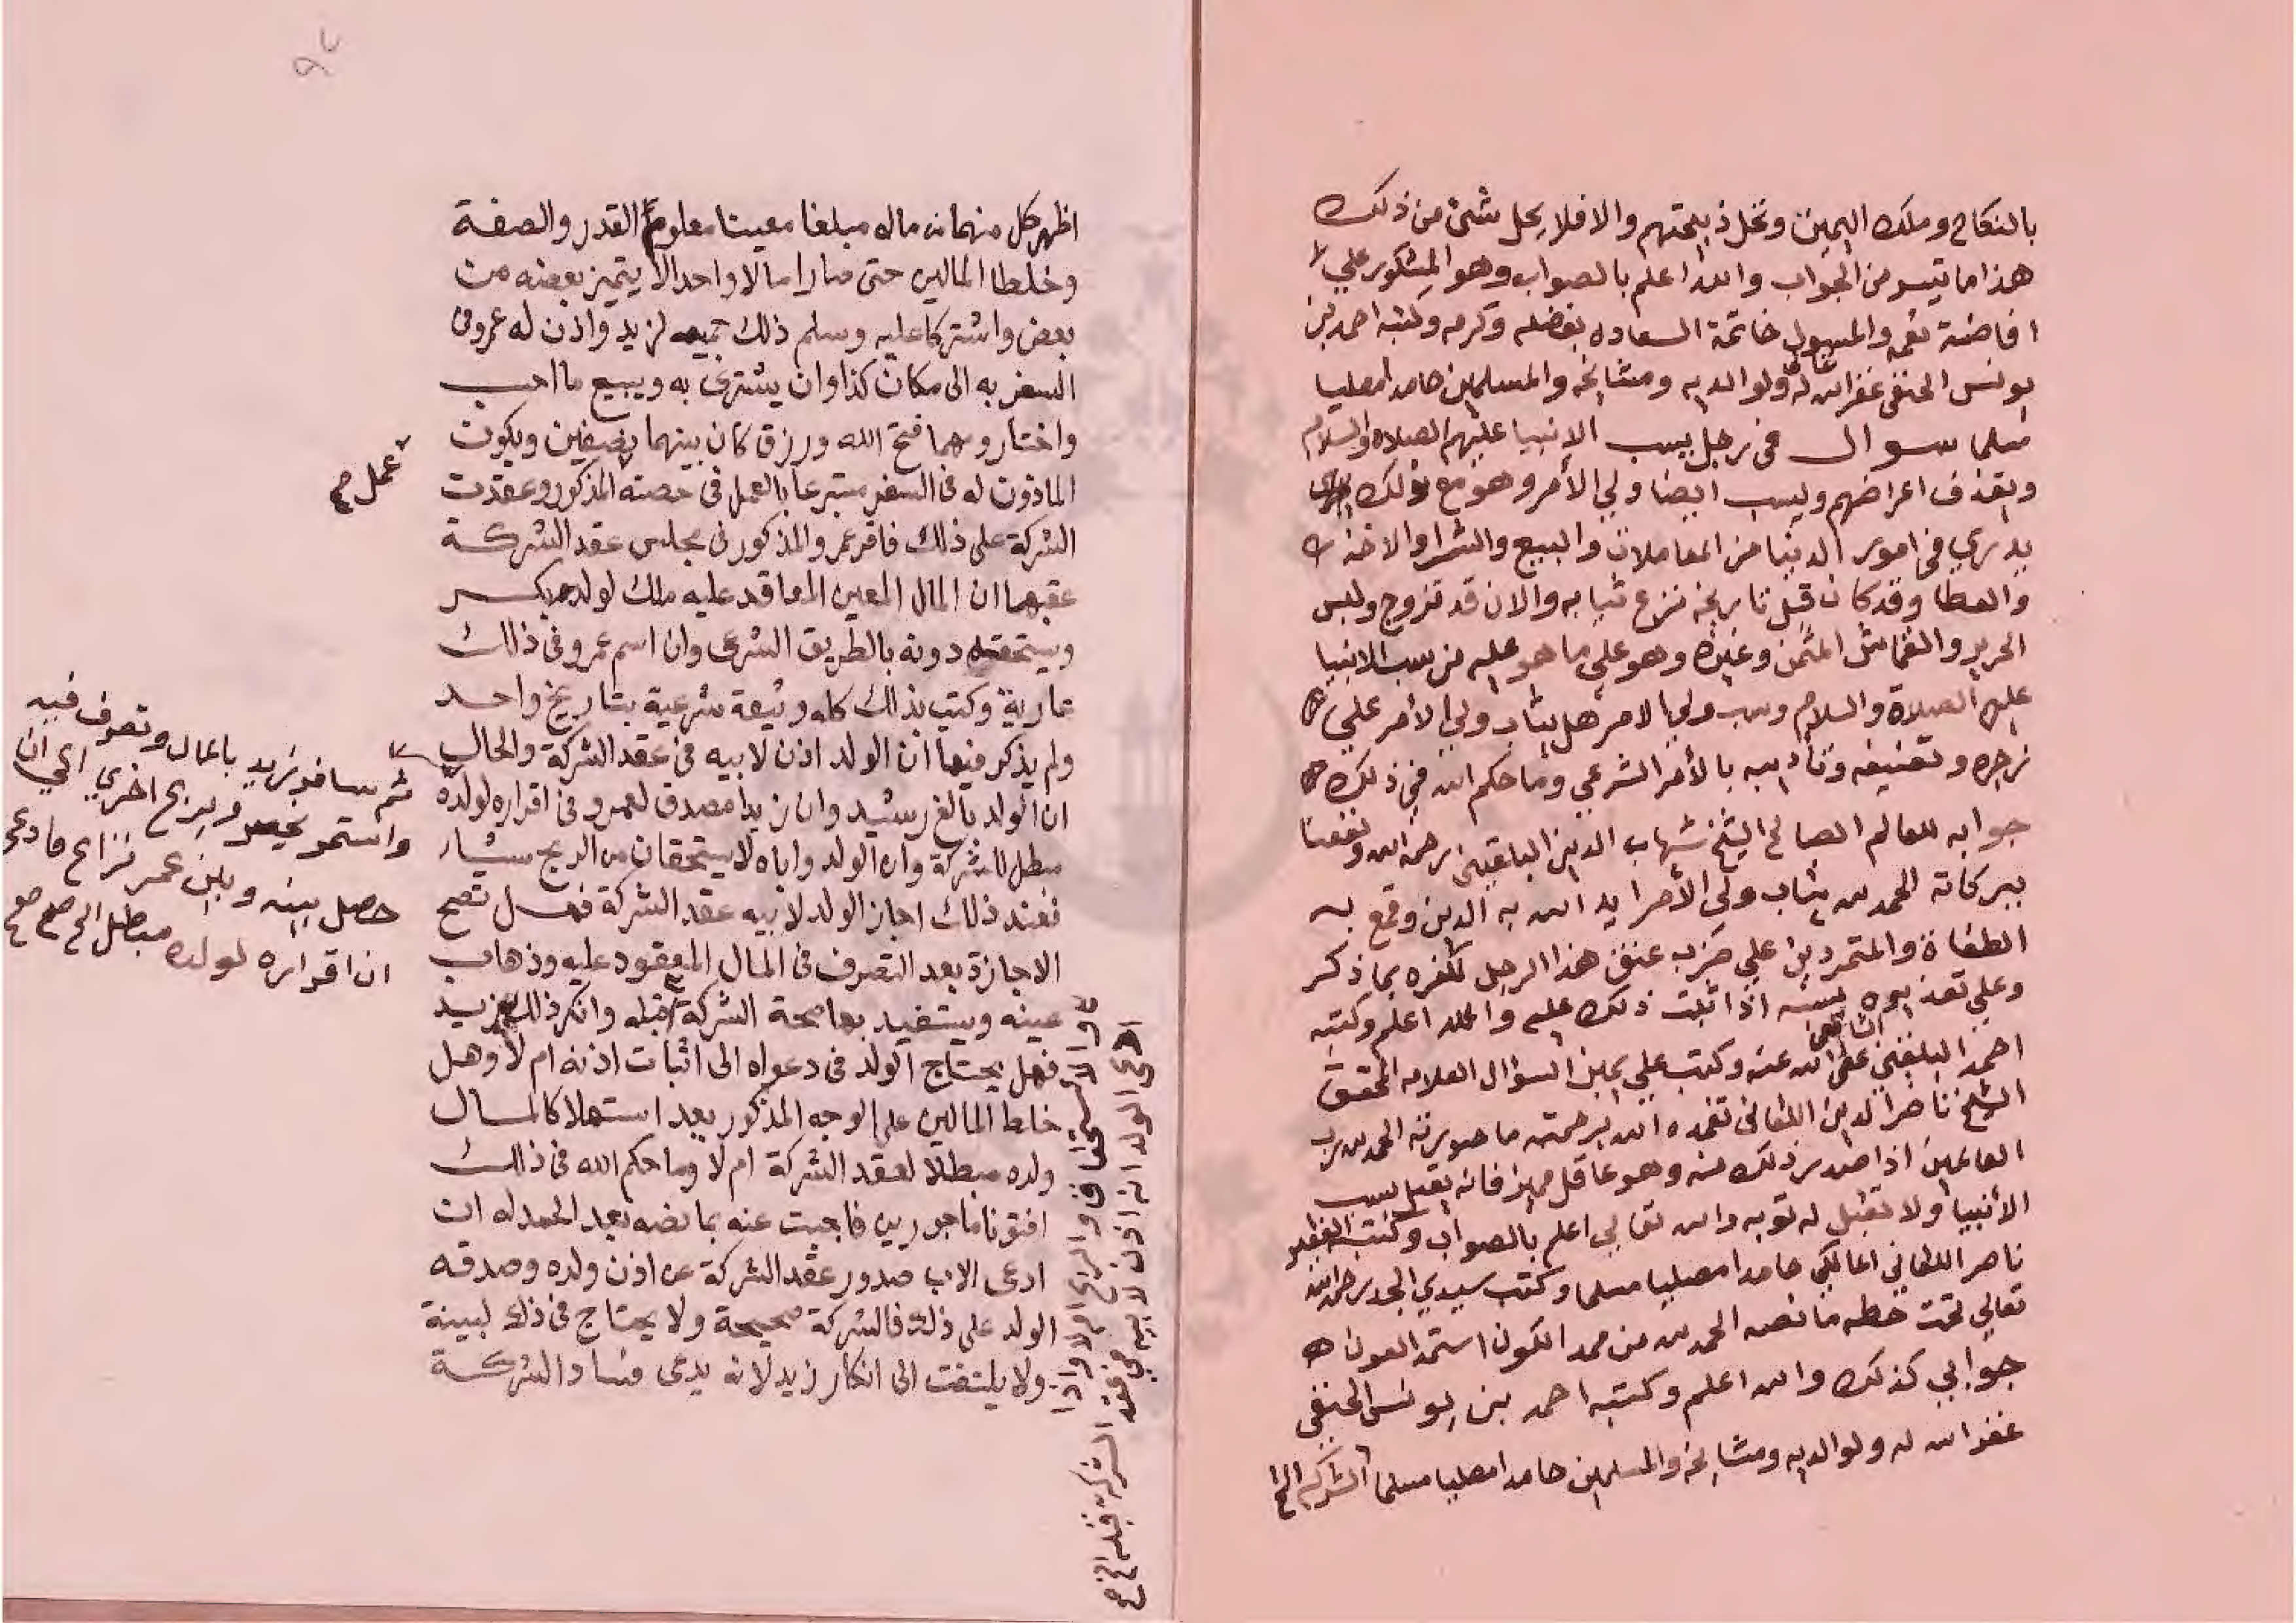 بالنكاح وملك اليمين وتحل ذبيحتهم والا فلا يحل شئ من ذلك
هذا ما تيسر من الجواب والله اعلم بالصواب وهو المشكور علي
افاضة نعمه والمسول خاتمة السعاده بفضله وكرمه وكتبه احمد بن
يونس الحنفى غفر الله له ولوالديه ومشايخه والمسلمين حامدا مصليا
مسلما سوال في رجل يسب الانبيا عليهم الصلاه والسلام
ويقذف اعراضهم ويسب ايضا ولي الأمر وهو مع ذلك
يدري في امور الدنيا من المعاملات والبيع والشرا والاخذ
والعطا وقد كان قبل تاريخه نزع ثيابه والان قد تزوج ولبس
الحرير والقماش المثمن وغيره وهو علي ما هو عليه من سب الانبيا
عليهم الصلاة والسلام وسب ولي الامر هل يثاب ولي الأمر علي
زجره وتعنيفه وتأديبه بالأمر الشرعي وما حكم الله في ذلك
جوابه للعالم الصالح الشيخ شهاب الدين البلقيني رحمه الله ونفعنا
ببركاته الحمد لله يثاب ولي الأمر ايد الله به الدين وقمع به
الطغاة والمتمردين علي ضرب عنق هذا الرجل لكفره بما ذكر
وعلي تعذيبه بسببه اذا ثبت ذلك عليه والله اعلم وكتبه
احمد البلقيني الشافعي عفى الله عنه وكتب علي يمين السؤال العلامه المحقق
الشيخ ناصر الدين اللقاني تغمده الله برحمته ما صورته الحمد لله رب
العالمين اذا صدر ذلك منه وهو عاقل مميز فانه يقتل بسب
الأنبيا ولا تقبل له توبه والله تعالي اعلم بالصواب وكتب الفقير
ناصر اللقاني المالكي حامدا مصليا مسلما وكتب سيدي الجد رحمه الله
تعالي تحت خطه ما نصه الحمد لله من ممد الكون استمد العون
جوابي كذلك والله اعلم وكتبه احمد بن يونس الحنفي
غفر الله له ولوالديه ومشايخه والمسلمين حامدا مصليا مسلما
اظهر كل منهما من ماله مبلغا معينا معلوم القدر والصفة
وخلطا المالين حتى صارا مالا واحدا لا يتميز بعضه من
بعض واشتركا عليه وسلم ذلك جميعه لزيد واذن له عمرو فى
السفر به الى مكان كذا وان يشترى به ويبيع ما احب
واختار ومهما فتح الله ورزق كان بينهما نصفين ويكون
عمل صح
الماذون له فى السفر متبرعا بالعمل فى حصته المذكور وعقدت
الشركة على ذلك فاقر عمرو المذكور فى مجلس عقد الشركة
عقبها ان المال المعين المعاقد عليه ملك لولده بكر
ويستحقه دونه بالطريق الشرعى وان اسم عمرو فى ذلك
عارية وكتب بذلك كله وثيقة شرعية بتاريخ واحد
ولم يذكر فيها ان الولد اذن لابيه فى عقد الشركة والحال
ان الولد بالغ رشيد وان زيدا مصدق لعمرو فى اقراره لولده
مبطل للشركة وان الولد واباه لا يستحقان من الربح شيئا
فعند ذلك اجاز الولد لابيه عقد الشركة فهل تصح
الاجازة بعد التصرف فى المال المعقود عليه وذهاب
عينه ويستفيد بها صحة الشركة قبله وانكر ذلك زيد
فهل يحتاج الولد فى دعواه الى اثبات اذنه ام لا وهل
خلط المالين على الوجه المذكور يعد استهلاكا لمال
ولده مبطلا لعقد الشركة ام لا وما حكم الله فى ذلك
افتونا ماجورين فاجبت عنه بما نصه بعد الحمد له ان
ادعى الاب صدور عقد الشركة عن اذن ولده وصدقه
الولد على ذلك فالشركة صحيحة ولا يحتاج فى ذلك لبينة
ولا يلتفت الى انكار زيد لانه يدعى فساد الشركة
ثم سافر زيد بالمال وتصرف فيه
واستمر يخسر ويربح اخرى الي ان
حصل بينه وبين عمر نزاع فادعى
ان اقراره لولده مبطل الخ صح صح
ادعى الولد انه اذن لابيه في عقد الشركة قبله الخ صح